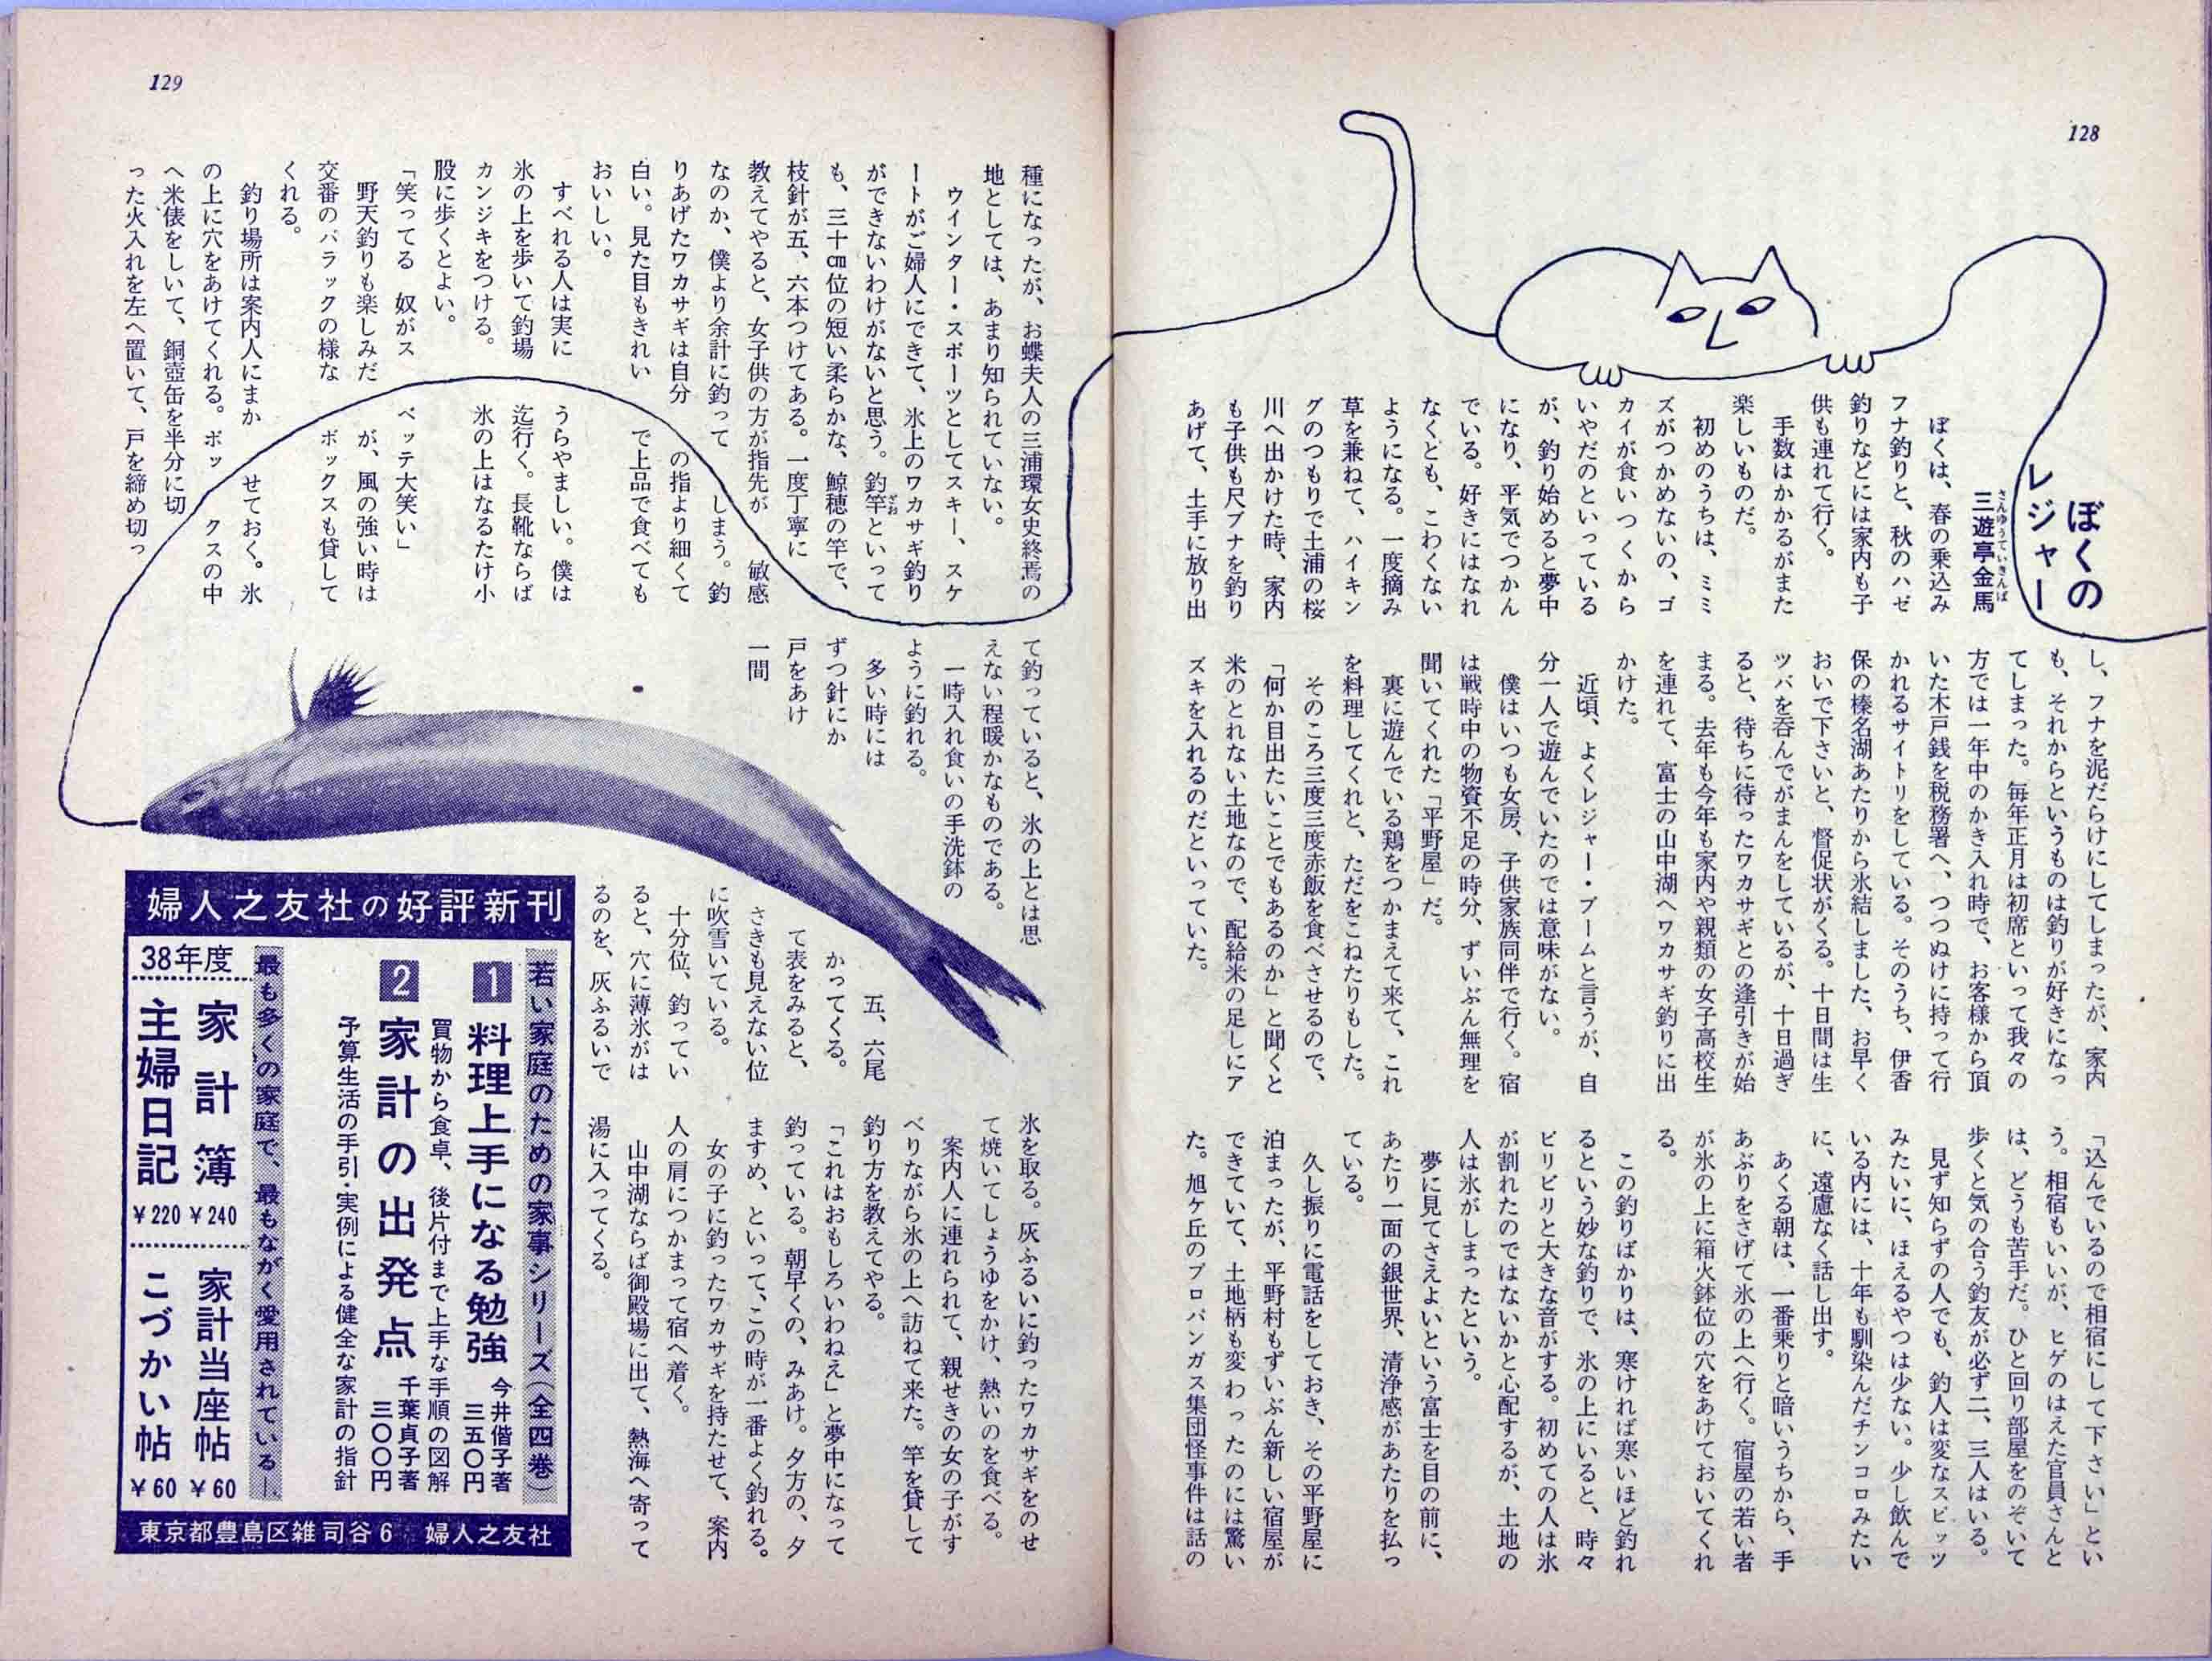 128
ぼくの
レジャー
三遊亭金馬
さんゆうていきんば
ぼくは、春の乗込み
フナ釣りと、秋のハゼ
釣りなどには家内も子
供も連れて行く。
手数はかかるがまた
楽しいものだ。
初めのうちは、ミミ
ズがつかめないの、ゴ
カイが食いつくから
いやだのといっている
が、釣り始めると夢中
になり、平気でつかん
でいる。好きにはなれ
なくとも、こわくない
ようになる。一度摘み
草を兼ねて、ハイキン
グのつもりで土浦の桜
川へ出かけた時、家内
も子供も尺ブナを釣り
あげて、土手に放り出
し、フナを泥だらけにしてしまったが、家内
も、それからというものは釣りが好きになっ
てしまった。毎年正月は初席といって我々の
方では一年中のかき入れ時で、お客様から頂
いた木戸銭を税務署へ、つつぬけに持って行
かれるサイトリをしている。そのうち、伊香
保の榛名湖あたりから氷結しました、お早く
おいで下さいと、督促状がくる。十日間は生
ツバを呑んでがまんをしているが、十日過ぎ
ると、待ちに待ったワカサギとの逢引きが始
まる。去年も今年も家内や親類の女子高校生
を連れて、富士の山中湖へワカサギ釣りに出
かけた。
近頃、よくレジャー・ブームと言うが、自
分一人で遊んでいたのでは意味がない。
僕はいつも女房、子供家族同伴で行く。宿
は戦時中の物資不足の時分、ずいぶん無理を
聞いてくれた「平野屋」だ。
裏に遊んでいる鶏をつかまえて来て、これ
を料理してくれと、ただをこねたりもした。
そのころ三度三度赤飯を食べさせるので、
「何か目出たいことでもあるのか」と聞くと
米のとれない土地なので、配給米の足しにア
ズキを入れるのだといっていた。
「込んでいるので相宿にして下さい」とい
う。相宿もいいが、ヒゲのはえた官員さんと
は、どうも苦手だ。ひと回り部屋をのぞいて
歩くと気の合う釣友が必ず二、三人はいる。
見ず知らずの人でも、釣人は変なスピッツ
みたいに、ほえるやつは少ない。少し飲んで
いる内には、十年も馴染んだチンコロみたい
に、遠慮なく話し出す。
あくる朝は、一番乗りと暗いうちから、手
あぶりをさげて氷の上へ行く。宿屋の若い者
が氷の上に箱火鉢位の穴をあけておいてくれ
る。
この釣りばかりは、寒ければ寒いほど釣れ
るという妙な釣りで、氷の上にいると、時々
ビリビリと大きな音がする。初めての人は氷
が割れたのではないかと心配するが、土地の
人は氷がしまったという。
夢に見てさえよいという富士を目の前に、
あたり一面の銀世界、清浄感があたりを払っ
ている。
久し振りに電話をしておき、その平野屋に
泊まったが、平野村もずいぶん新しい宿屋が
できていて、土地柄も変わったのには驚い
た。旭ケ丘のプロパンガス集団怪事件は話の
129
種になったが、お蝶夫人の三浦環女史終焉の
地としては、あまり知られていない。
ウインター・スポーツとしてスキー、スケ
ートがご婦人にできて、氷上のワカサギ釣り
ができないわけがないと思う。釣竿といって
ざお
も、三十㎝位の短い柔らかな、鯨穂の竿で、
枝針が五、六本つけてある。一度丁寧に
教えてやると、女子供の方が指先が 敏感
なのか、僕より余計に釣って しまう。釣
りあげたワカサギは自分 の指より細くて
白い。見た目もきれい で上品で食べても
おいしい。
すべれる人は実に うらやましい。僕は
氷の上を歩いて釣場 迄行く。長靴ならば
カンジキをつける。 氷の上はなるたけ小
股に歩くとよい。
「笑ってる 奴がス ベッテ大笑い」
野天釣りも楽しみだ が、風の強い時は
交番のバラックの様な ボックスも貸して
くれる。
釣り場所は案内人にまか せておく。氷
の上に穴をあけてくれる。ボッ クスの中
へ米俵をしいて、銅壺缶を半分に切
った火入れを左へ置いて、戸を締め切っ
て釣っていると、氷の上とは思
えない程暖かなものである。
一時入れ食いの手洗鉢の
ように釣れる。
多い時には 五、六尾
ずつ針にか かってくる。
戸をあけ て表をみると、
一間 さきも見えない位
に吹雪いている。
十分位、釣ってい
ると、穴に薄氷がは
るのを、灰ふるいで
氷を取る。灰ふるいに釣ったワカサギをのせ
て焼いてしょうゆをかけ、熱いのを食べる。
案内人に連れられて、親せきの女の子がす
べりながら氷の上へ訪ねて来た。竿を貸して
釣り方を教えてやる。
「これはおもしろいわねえ」と夢中になって
釣っている。朝早くの、みあけ。夕方の、夕
ますめ、といって、この時が一番よく釣れる。
女の子に釣ったワカサギを持たせて、案内
人の肩につかまって宿へ着く。
山中湖ならば御殿場に出て、熱海へ寄って
湯に入ってくる。
婦人之友社の好評新刊
若い家庭のための家事シリーズ(全四巻)
1 料理上手になる勉強 今井偕子著 三五〇円
買物から食卓、後片付まで上手な手順の図解
2 家計の出発点 千葉貞子著 三〇〇円
予算生活の手引・実例による健全な家計の指針
最も多くの家庭で、最もながく愛用されている—
38年度
家計簿 ¥240
主婦日記 ¥220
家計当座帖 ¥60
こづかい帖 ¥60
東京都豊島区雑司谷6 婦人之友社